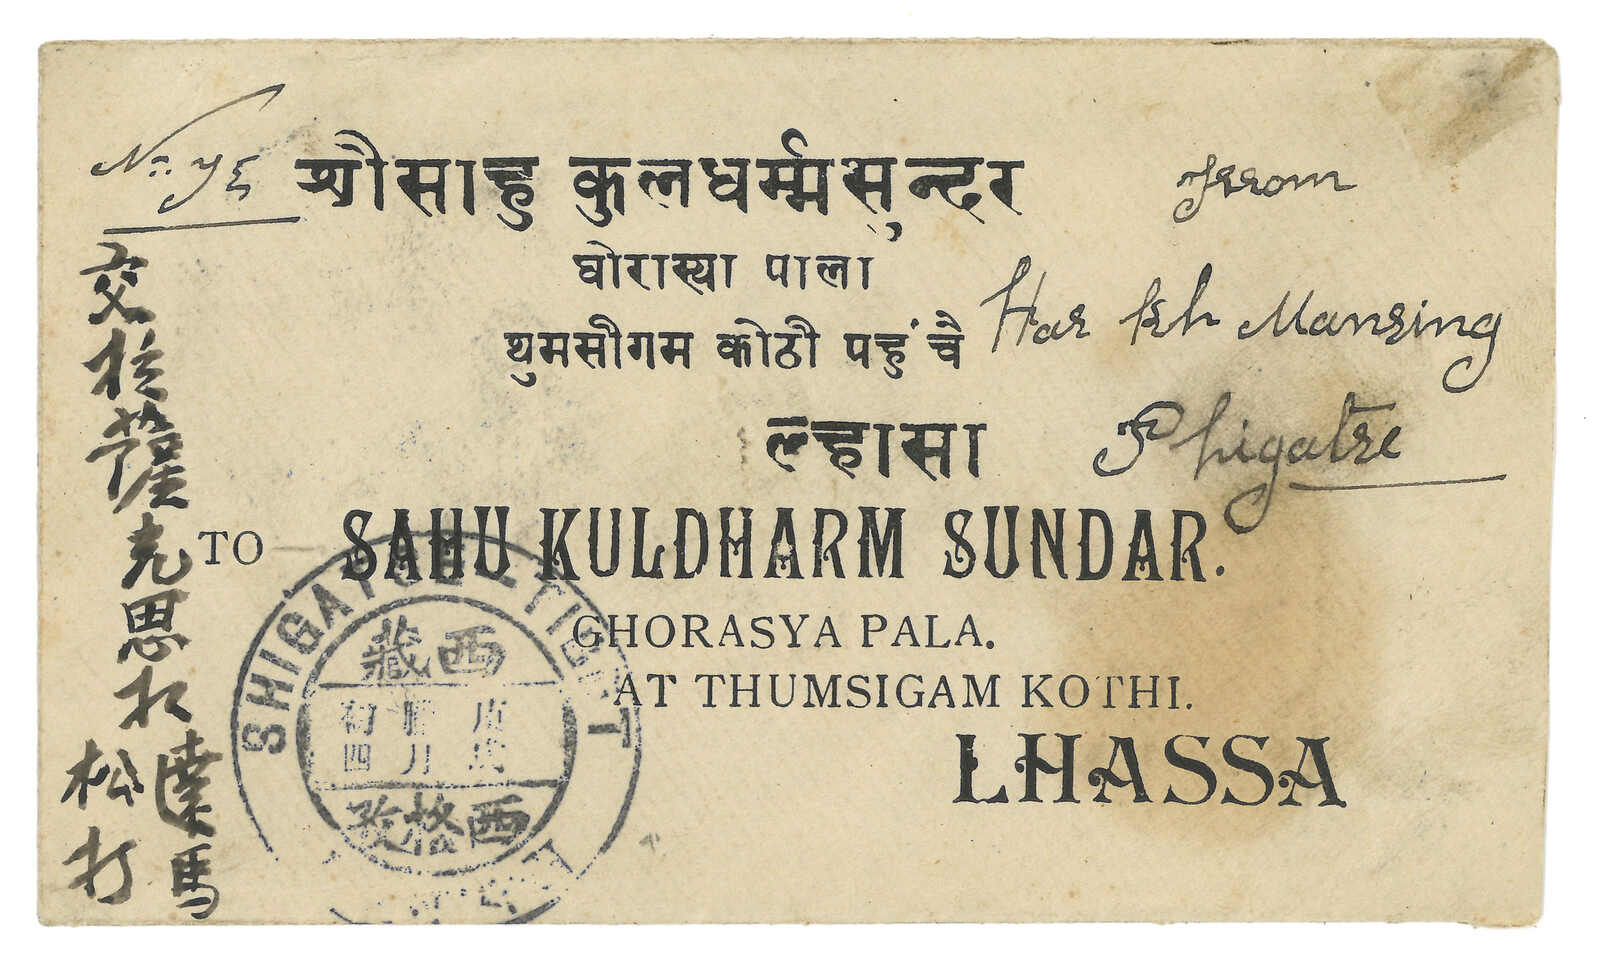 No. 48
श्रीसाहु कुलधर्म्मसुन्दर
घोरास्या पाला
थुमसीगम कोठी पहुंचै
ल्हासा
From
Harkh Mansing
Shigatse
TO SAHU KULDHARM SUNDAR.
GHORASYA PALA.
AT THUMSIGAM KOTHI.
LHASSA
交
達馬
松打
SHIGATSE-TIBET
西藏
庚戌
臘月
初四
西格孜